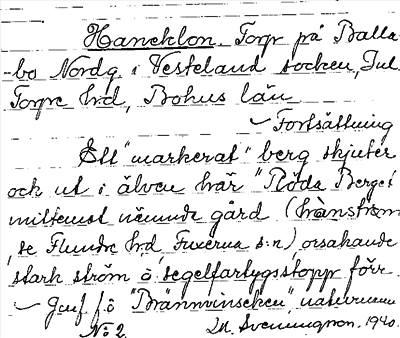 Haneklon. Torp på Balla-
bo Nordg. i Västerland socken, Inl.
Torpe hrd, Bohus län
Fortsättning
Ett "markerat" berg skjuter
och ut i älven här "Röda Berget"
mittemot nämnda gård (
se Flundre hrd, Fuxerna s:n), orsakande
stark ström å segelfartygsstopp förr.
Jmf f.ö "Brännvinseken", naturnamn
No 2. 1940.